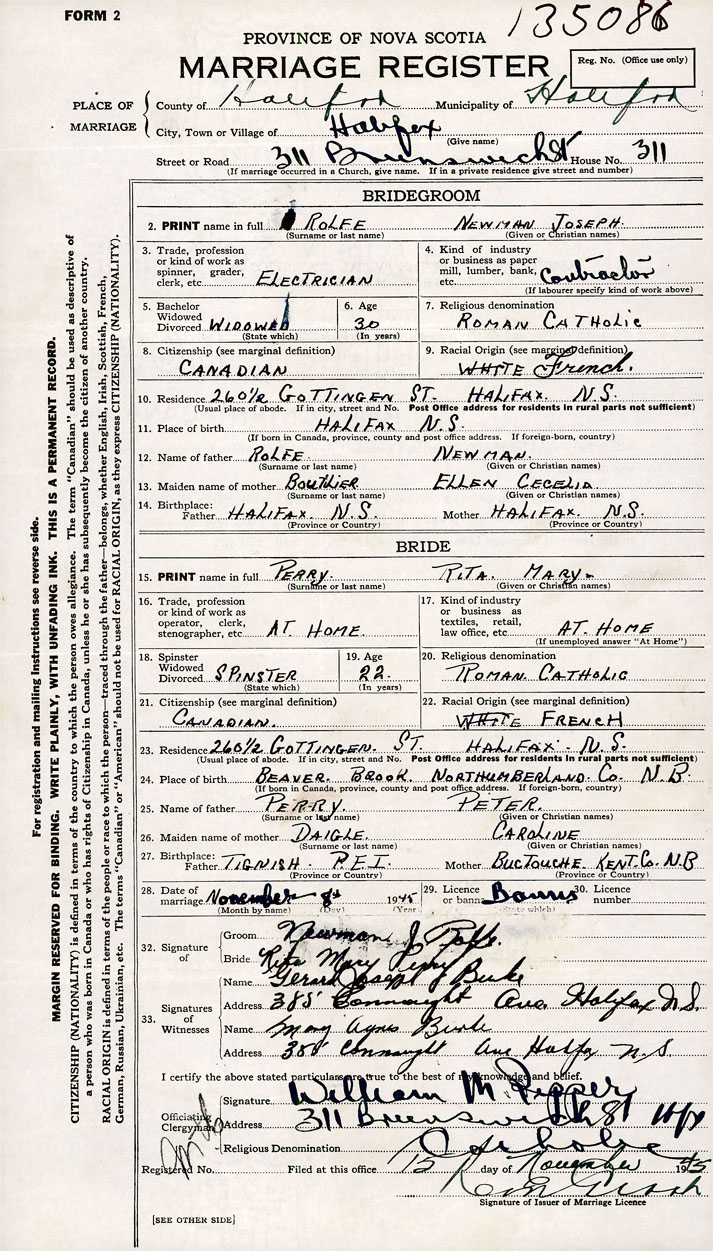 FORM 2
135086
PROVINCE OF NOVA SCOTIA
MARRIAGE REGISTER
Reg. No. (Office use only)
PLACE OF MARRIAGE
County of Halifax Municipality of Halifax
City, Town or Village of Halifax
(Give name)
Street or Road 311 Brunswick St House No. 311
(If marriage occurred in a Church, give name. If in a private residence give street and number)
BRIDEGROOM
2. PRINT name in full ROLFE NEWMAN JOSEPH.
(Surname or last name) (Given or Christian names)
3. Trade, profession or kind of work as spinner, grader, clerk, etc. ELECTRICIAN
4. Kind of industry or business as paper mill, lumber, bank, etc. Contractor
(If labourer specify kind of work above)
5. Bachelor Widowed Divorced WIDOWED
(State which)
6. Age 30
(In years)
7. Religious denomination
ROMAN CATHOLIC
8. Citizenship (see marginal definition)
CANADIAN
9. Racial Origin (see marginal definition)
WHITE French.
10. Residence 260½ GOTTINGEN ST. HALIFAX N.S.
(Usual place of abode. If in city, street and No. Post Office address for residents in rural parts not sufficient)
11. Place of birth HALIFAX N.S.
(If born in Canada, province, county and post office address. If foreign-born, country)
12. Name of father ROLFE. NEWMAN.
(Surname or last name) (Given or Christian names)
13. Maiden name of mother BOUTLIER ELLEN CECELIA
(Surname or last name) (Given or Christian names)
14. Birthplace: Father HALIFAX. N.S. Mother HALIFAX. N.S.
(Province or Country) (Province or Country)
BRIDE
15. PRINT name in full PERRY. RITA. MARY-
(Surname or last name) (Given or Christian names)
16. Trade, profession or kind of work as operator, clerk, stenographer, etc AT HOME.
17. Kind of industry or business as textiles, retail, law office, etc. AT. HOME
(If unemployed answer "At Home")
18. Spinster Widowed Divorced SPINSTER
(State which)
19. Age 22.
(In years)
20. Religious denomination
ROMAN CATHOLIC
21. Citizenship (see marginal definition)
CANADIAN.
22. Racial Origin (see marginal definition)
WHITE FRENCH
23. Residence 260½ GOTTINGEN. ST. HALIFAX - N.S.
(Usual place of abode. If in city, street and No. Post Office address for residents in rural parts not sufficient)
24. Place of birth BEAVER. BROOK. NORTHUMBERLAND. CO. N.B
(If born in Canada, province, county and post office address. If foreign-born, country)
25. Name of father PERRY. PETER.
(Surname or last name) (Given or Christian names)
26. Maiden name of mother DAIGLE. CAROLINE
(Surname or last name) (Given or Christian names)
27. Birthplace: Father TIGNISH. P.E.I. Mother BUCTOUCHE KENT. CO. N.B
(Province or Country) (Province or Country)
28. Date of marriage November 8th 1945
(Month by name) (Day) (Year)
29. Licence or banns Banns
(State which)
30. Licence number
32. Signature of
Groom Newman J Rolfe.
Bride Rita Mary Perry
33. Signatures of Witnesses
Name Gerard Joseph Burke
Address 385 Connaught Ave Halifax N.S.
Name Mary Agnes Burke
Address 385 Connaught Ave Halifax N.S.
I certify the above stated particulars are true to the best of my knowledge and belief.
Officiating Clergyman
Signature William M Pepper
Address 311 Brunswick St Hfx
Religious Denomination Catholic
Registered No. Filed at this office 15 day of November 1945
Signature of Issuer of Marriage Licence
[SEE OTHER SIDE]
For registration and mailing instructions see reverse side.
MARGIN RESERVED FOR BINDING. WRITE PLAINLY, WITH UNFADING INK. THIS IS A PERMANENT RECORD.
CITIZENSHIP (NATIONALITY) is defined in terms of the country to which the person owes allegiance. The term "Canadian" should be used as descriptive of
a person who was born in Canada or who has rights of Citizenship in Canada, unless he or she has subsequently become the citizen of another country.
RACIAL ORIGIN is defined in terms of the people or race to which the person—traced through the father—belongs, whether English, Irish, Scottish, French,
German, Russian, Ukrainian, etc. The terms "Canadian" or "American" should not be used for RACIAL ORIGIN, as they express CITIZENSHIP (NATIONALITY).